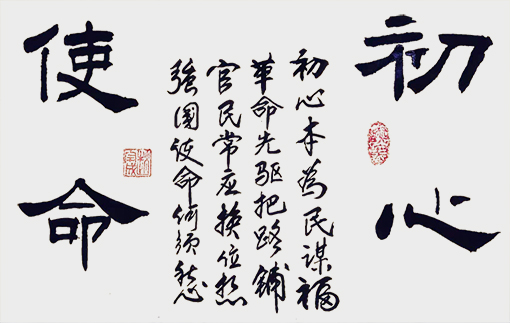 初心
初心本為民谋福
革命先驱把路铺
官民常应换位想
强國使命何须愁
使命